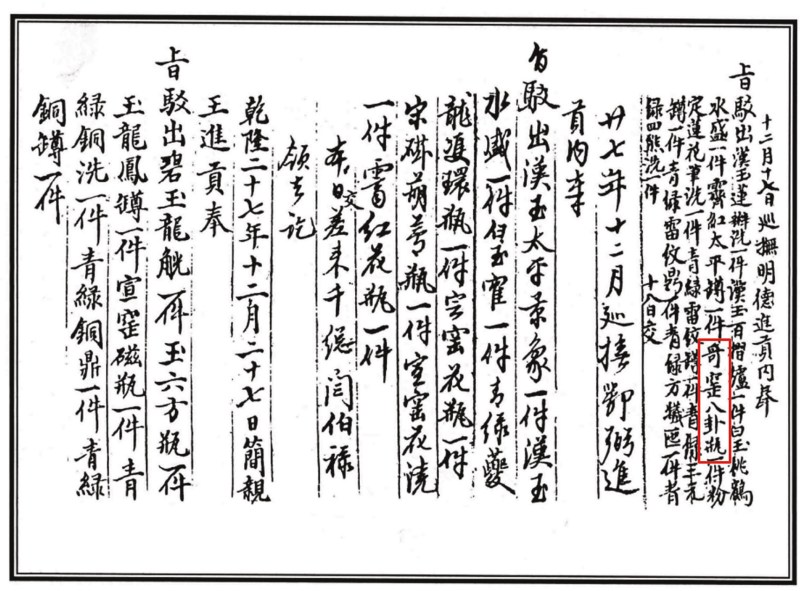 十二月十七日巡撫明德進貢內奉
旨駁出漢玉蓮瓣洗一件漢玉百摺爐一件白玉桃鶴
水盛一件霽紅太平罇一件哥窑八卦瓶一件粉
定蓮花筆洗一件青綠雷紋罇一件青
罇一件青綠雷紋鼎一件青綠方犧匜一件青
綠四熊洗一件 十八日交
廿七年十二月巡撫鄂弼進
貢內奉
旨駁出漢玉太平景象一件漢玉
水盛一件白玉一件青綠夔
龍雙環瓶一件官窑花瓶一件
宋磁葫蘆瓶一件宣窑花澆
一件霽紅花瓶一件
本日交差來千總閆伯祿
領去訖
乾隆二十七年十二月二十七日簡親
王進貢奉
旨駁出碧玉龍觥一件玉六方瓶一件
玉龍鳳罇一件宣窑磁瓶一件青
綠銅洗一件青綠銅鼎一件青綠
銅罇一件